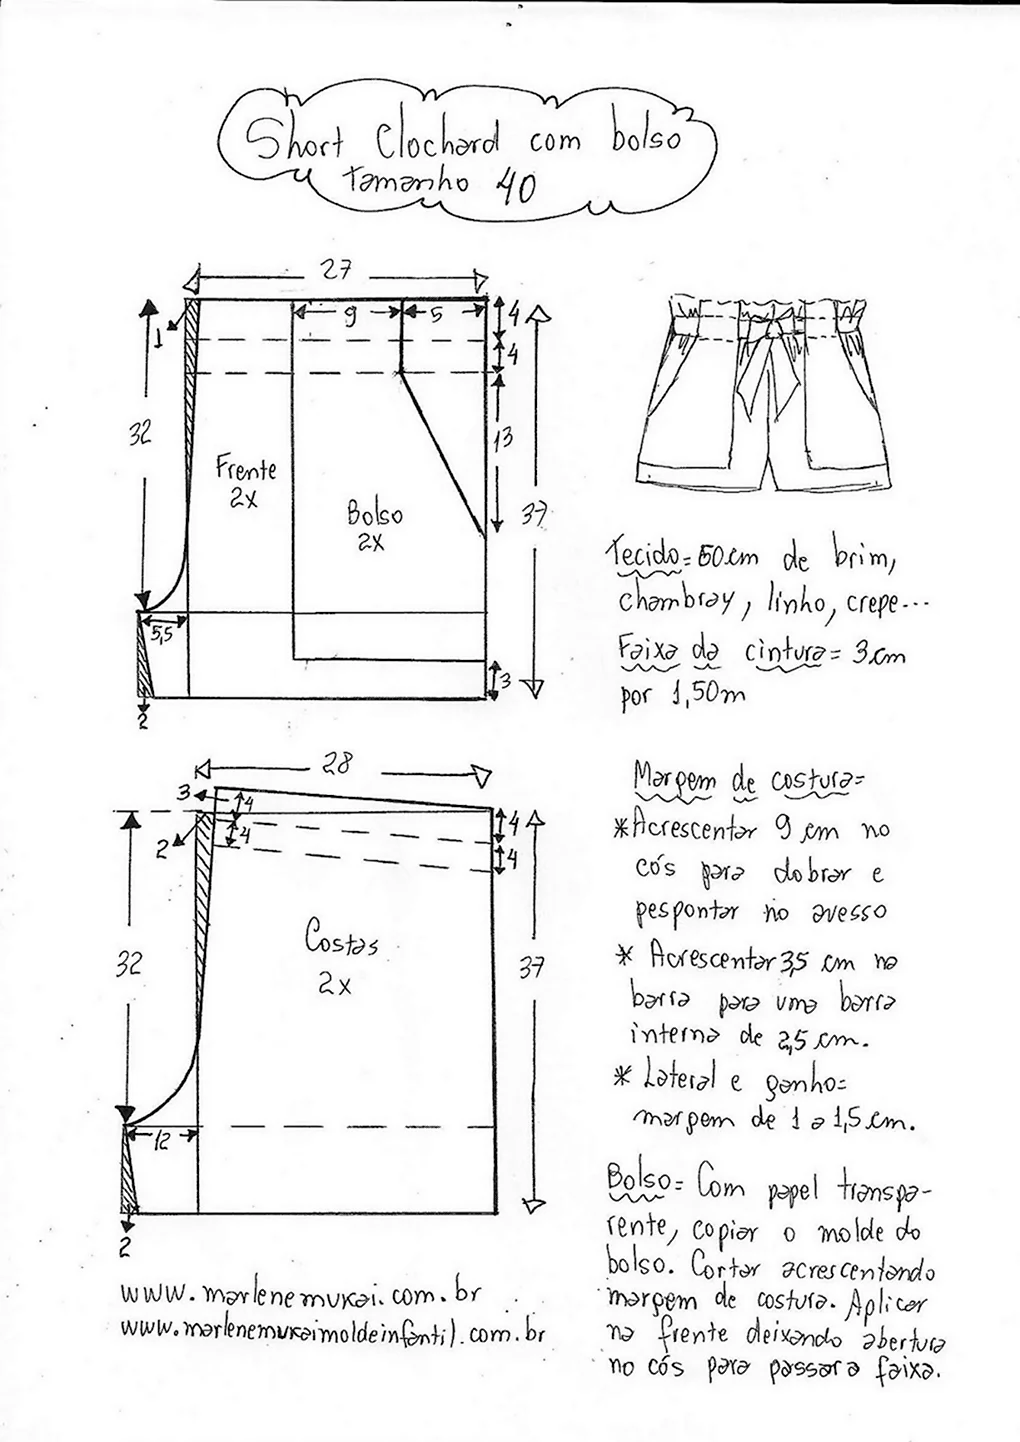 Short Clochard com bolso
tamanho 40
27
9
5
4
4
1
32
13
37
Frente
2x
Bolso
2x
5,5
3
2
Tecido = 50 cm de brim,
chambray, linho, crepe...
Faixa da cintura = 3 cm
por 1,50m
28
3
4
4
4
4
2
32
37
Costas
2x
12
2
Margem de costura =
*Acrescentar 9 cm no
cós para dobrar e
pespontar no avesso
* Acrescentar 3,5 cm na
barra para uma barra
interna de 2,5 cm.
* Lateral e ganho =
margem de 1 a 1,5 cm.
Bolso = Com papel transpa-
rente, copiar o molde do
bolso. Cortar acrescentando
margem de costura. Aplicar
na frente deixando abertura
no cós para passar a faixa.
www.marlenemukai.com.br
www.marlenemukaimoldeinfantil.com.br